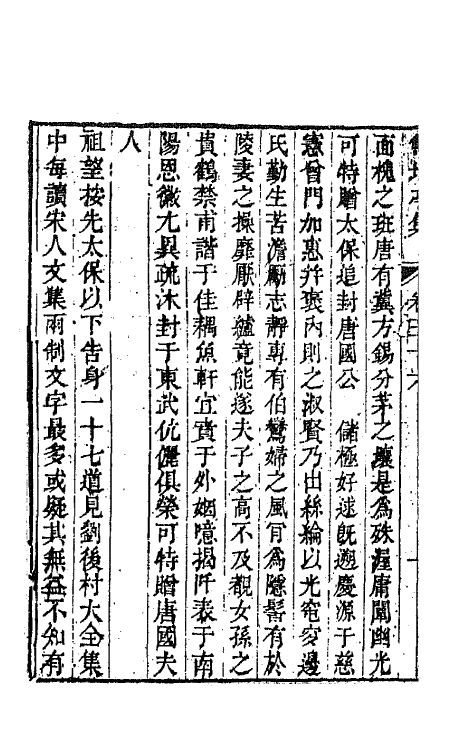 面槐之班唐有冀方錫分茅之壤是為殊渥庸闡幽光
可特贈太保追封唐國公　儲極好逑既遡慶源于慈
憲曾門加惠并褒內則之淑賢乃出絲綸以光窀穸邊
氏勤生苦澹勵志靜專有伯鸞婦之風肯為隱髻有於
陵妻之操靡厭辟纑竟能遂夫子之高不及觀女孫之
貴鶴禁甫諧于佳耦魚軒宜賁于外姻噫揭阡表于南
陽恩微尤異疏沐封于東武伉儷俱榮可特贈唐國夫
人
祖望按先太保以下告身一十七道見劉後村大全集
中每讀宋人文集兩制文字最多或疑其無益不知有